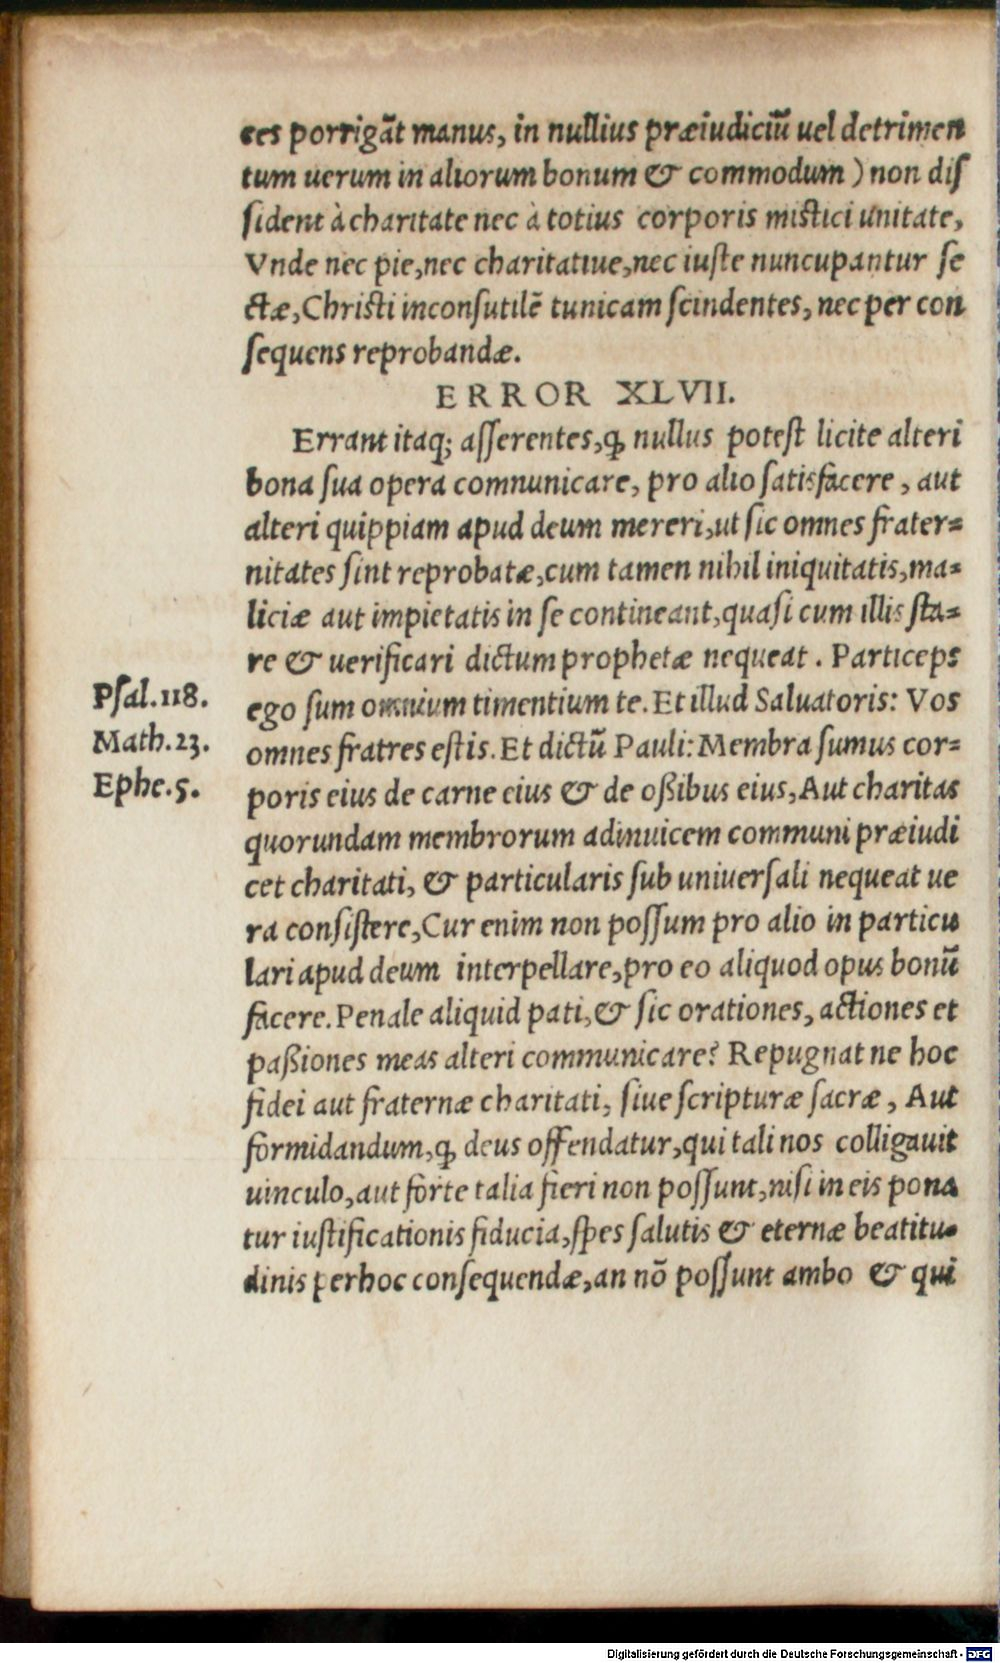 ces porrigāt manus, in nullius præiudiciū uel detrimen
tum uerum in aliorum bonum & commodum) non diſ
ſident à charitate nec à totius corporis miſtici unitate,
Vnde nec pie, nec charitatiue, nec iuſte nuncupantur ſe
ctæ, Chriſti inconſutilē tunicam ſcindentes, nec per con
ſequens reprobandæ.
ERROR XLVII.
Errant itaq; aſſerentes, ꝙ nullus poteſt licite alteri
bona ſua opera comnunicare, pro alio ſatisfacere, aut
alteri quippiam apud deum mereri, ut ſic omnes frater=
nitates ſint reprobatæ, cum tamen nihil iniquitatis, ma=
liciæ aut impietatis in ſe contineant, quaſi cum illis ſta=
re & uerificari dictum prophetæ nequeat. Particeps
Pſal.118.
ego ſum omnium timentium te. Et illud Saluatoris: Vos
Math.23.
omnes fratres eſtis. Et dictū Pauli: Membra ſumus cor=
Ephe.5.
poris eius de carne eius & de oßibus eius, Aut charitas
quorundam membrorum adinuicem communi præiudi
cet charitati, & particularis ſub uniuerſali nequeat ue
ra conſiſtere, Cur enim non poſſum pro alio in particu
lari apud deum interpellare, pro eo aliquod opus bonū
facere. Penale aliquid pati, & ſic orationes, actiones et
paßiones meas alteri communicare? Repugnat ne hoc
fidei aut fraternæ charitati, ſiue ſcripturæ ſacræ, Aut
formidandum, ꝙ deus offendatur, qui tali nos colligauit
uinculo, aut forte talia fieri non poſſunt, niſi in eis pona
tur iuſtificationis fiducia, ſpes ſalutis & eternæ beatitu=
dinis perhoc conſequendæ, an nō poſſunt ambo & qui
Digitalisierung gefördert durch die Deutsche Forschungsgemeinschaft - DFG